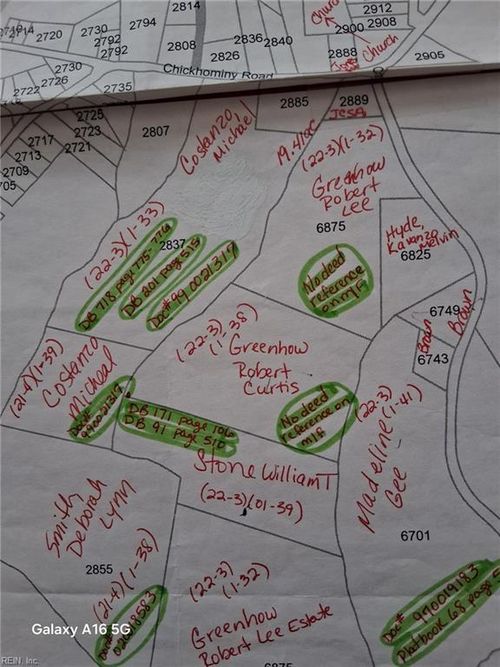 2814
2794
2714
2720
2730
2792
2792
2808
2826
2836
2840
Church
2912
2908
2900
2888
Church
2905
Chickhominy Road
2730
2726
2722
2735
2725
2723
2721
2717
2713
2709
2807
2885
2889
JCSA
Costanzo
Michael
19.41ac
(22-3)(1-32)
Greenhow
Robert
Lee
6875
Hyde,
Kavanzo Melvin
6825
(22-3)(1-33)
2837
DB 718 page 775-776
DB 201 page 515
Doc# 990021317
No deed
reference
on mif
6749
Brown
Brown
6743
(22-3),
(1,38)
Greenhow
Robert
Curtis
(21-4)(1-39)
Costanzo
Micheal
Doc#
990021317
DB 171 page 106
DB 91 page 510
No deed
reference on
mif
(22-3)
(1-41)
Madeline
Gee
Stone William T
(22-3)(01-39)
6701
Smith
Deborah
Lynn
2855
(21-4)(1-38)
Doc#
(22-3)
(1-32)
Greenhow
Robert Lee Estate
6875
Doc# 970019183
Platbook 68 page 5
Galaxy A16 5G
REIN, Inc.